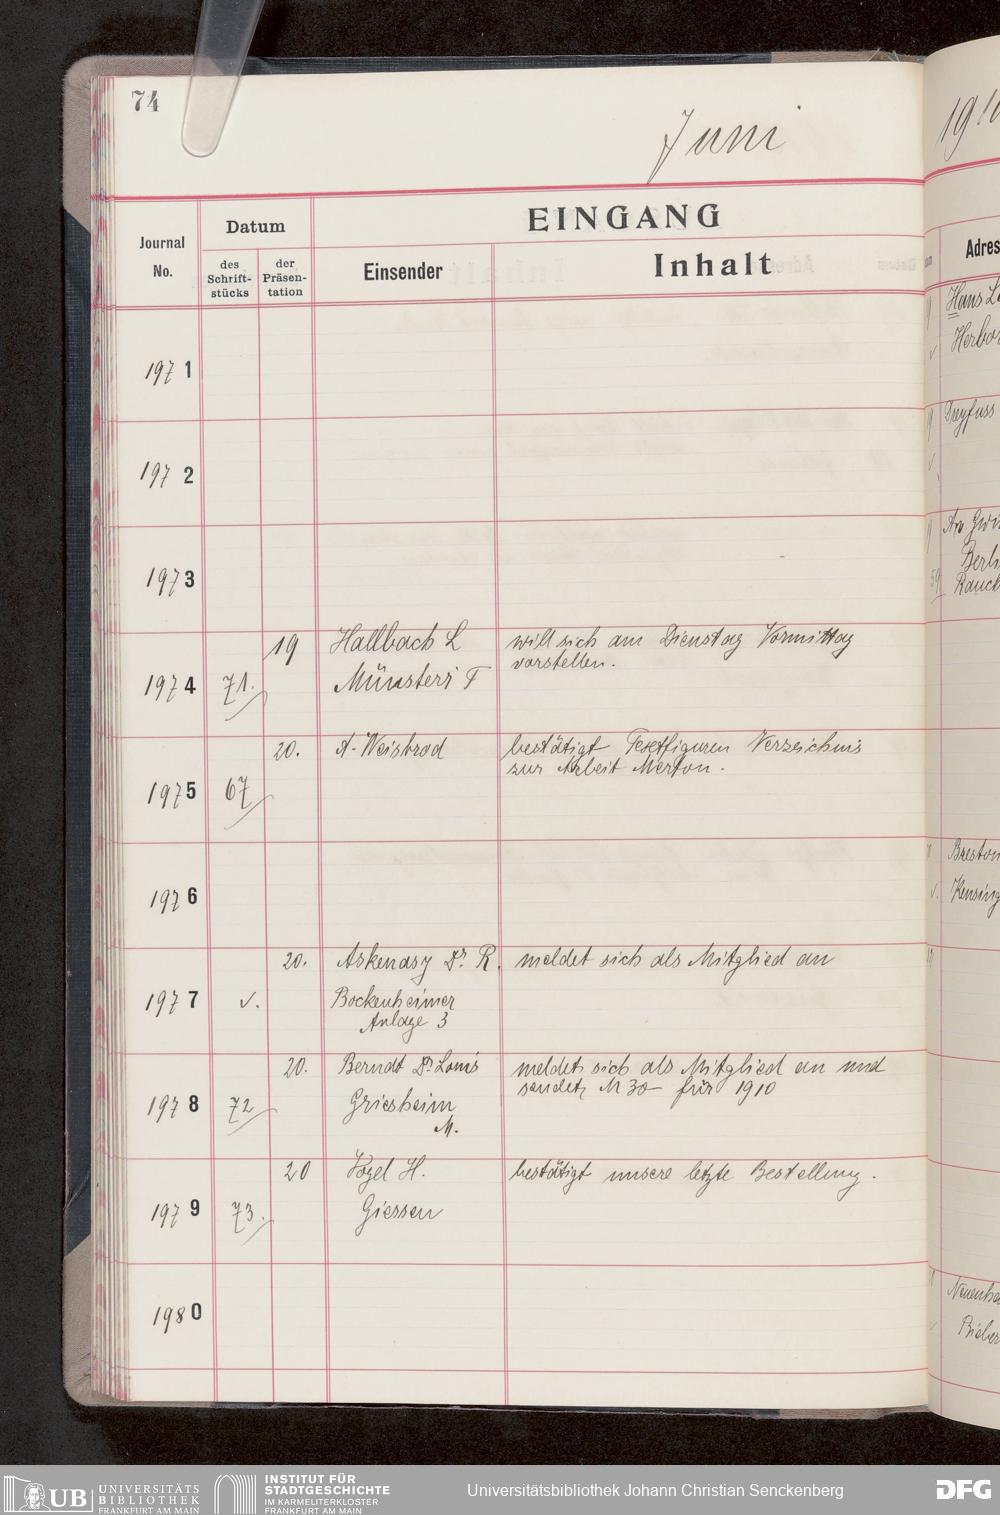 74
Juni
191
EINGANG
Journal
No.
Datum
des
Schrift-
stücks
der
Präsen-
tation
Einsender
Inhalt
Adres
1971
Hans
Herbor
1972
Dreyfuss
1973
Berli
1974 71. 19 Hallbach L
Münsteri T
will sich am Dienstag Vormittag
vorstellen.
1975 67 20. A. Weisbrod
bestätigt Textfiguren Verzeichnis
zur Arbeit Merton.
1976
Kensing
1977 v. 20. Askenasy Dr. R.
Bockenheimer
Anlage 3
meldet sich als Mitglied an
1978 72 20. Berndt Dr Louis
Griesheim
M.
meldet sich als Mitglied an und
sendet M 30 – für 1910
1979 73. 20 Vogel H.
Giessen
bestätigt unsere letzte Bestellung.
1980
Bieber
UB UNIVERSITÄTS
BIBLIOTHEK
FRANKFURT AM MAIN
INSTITUT FÜR
STADTGESCHICHTE
IM KARMELITERKLOSTER
FRANKFURT AM MAIN
Universitätsbibliothek Johann Christian Senckenberg
DFG